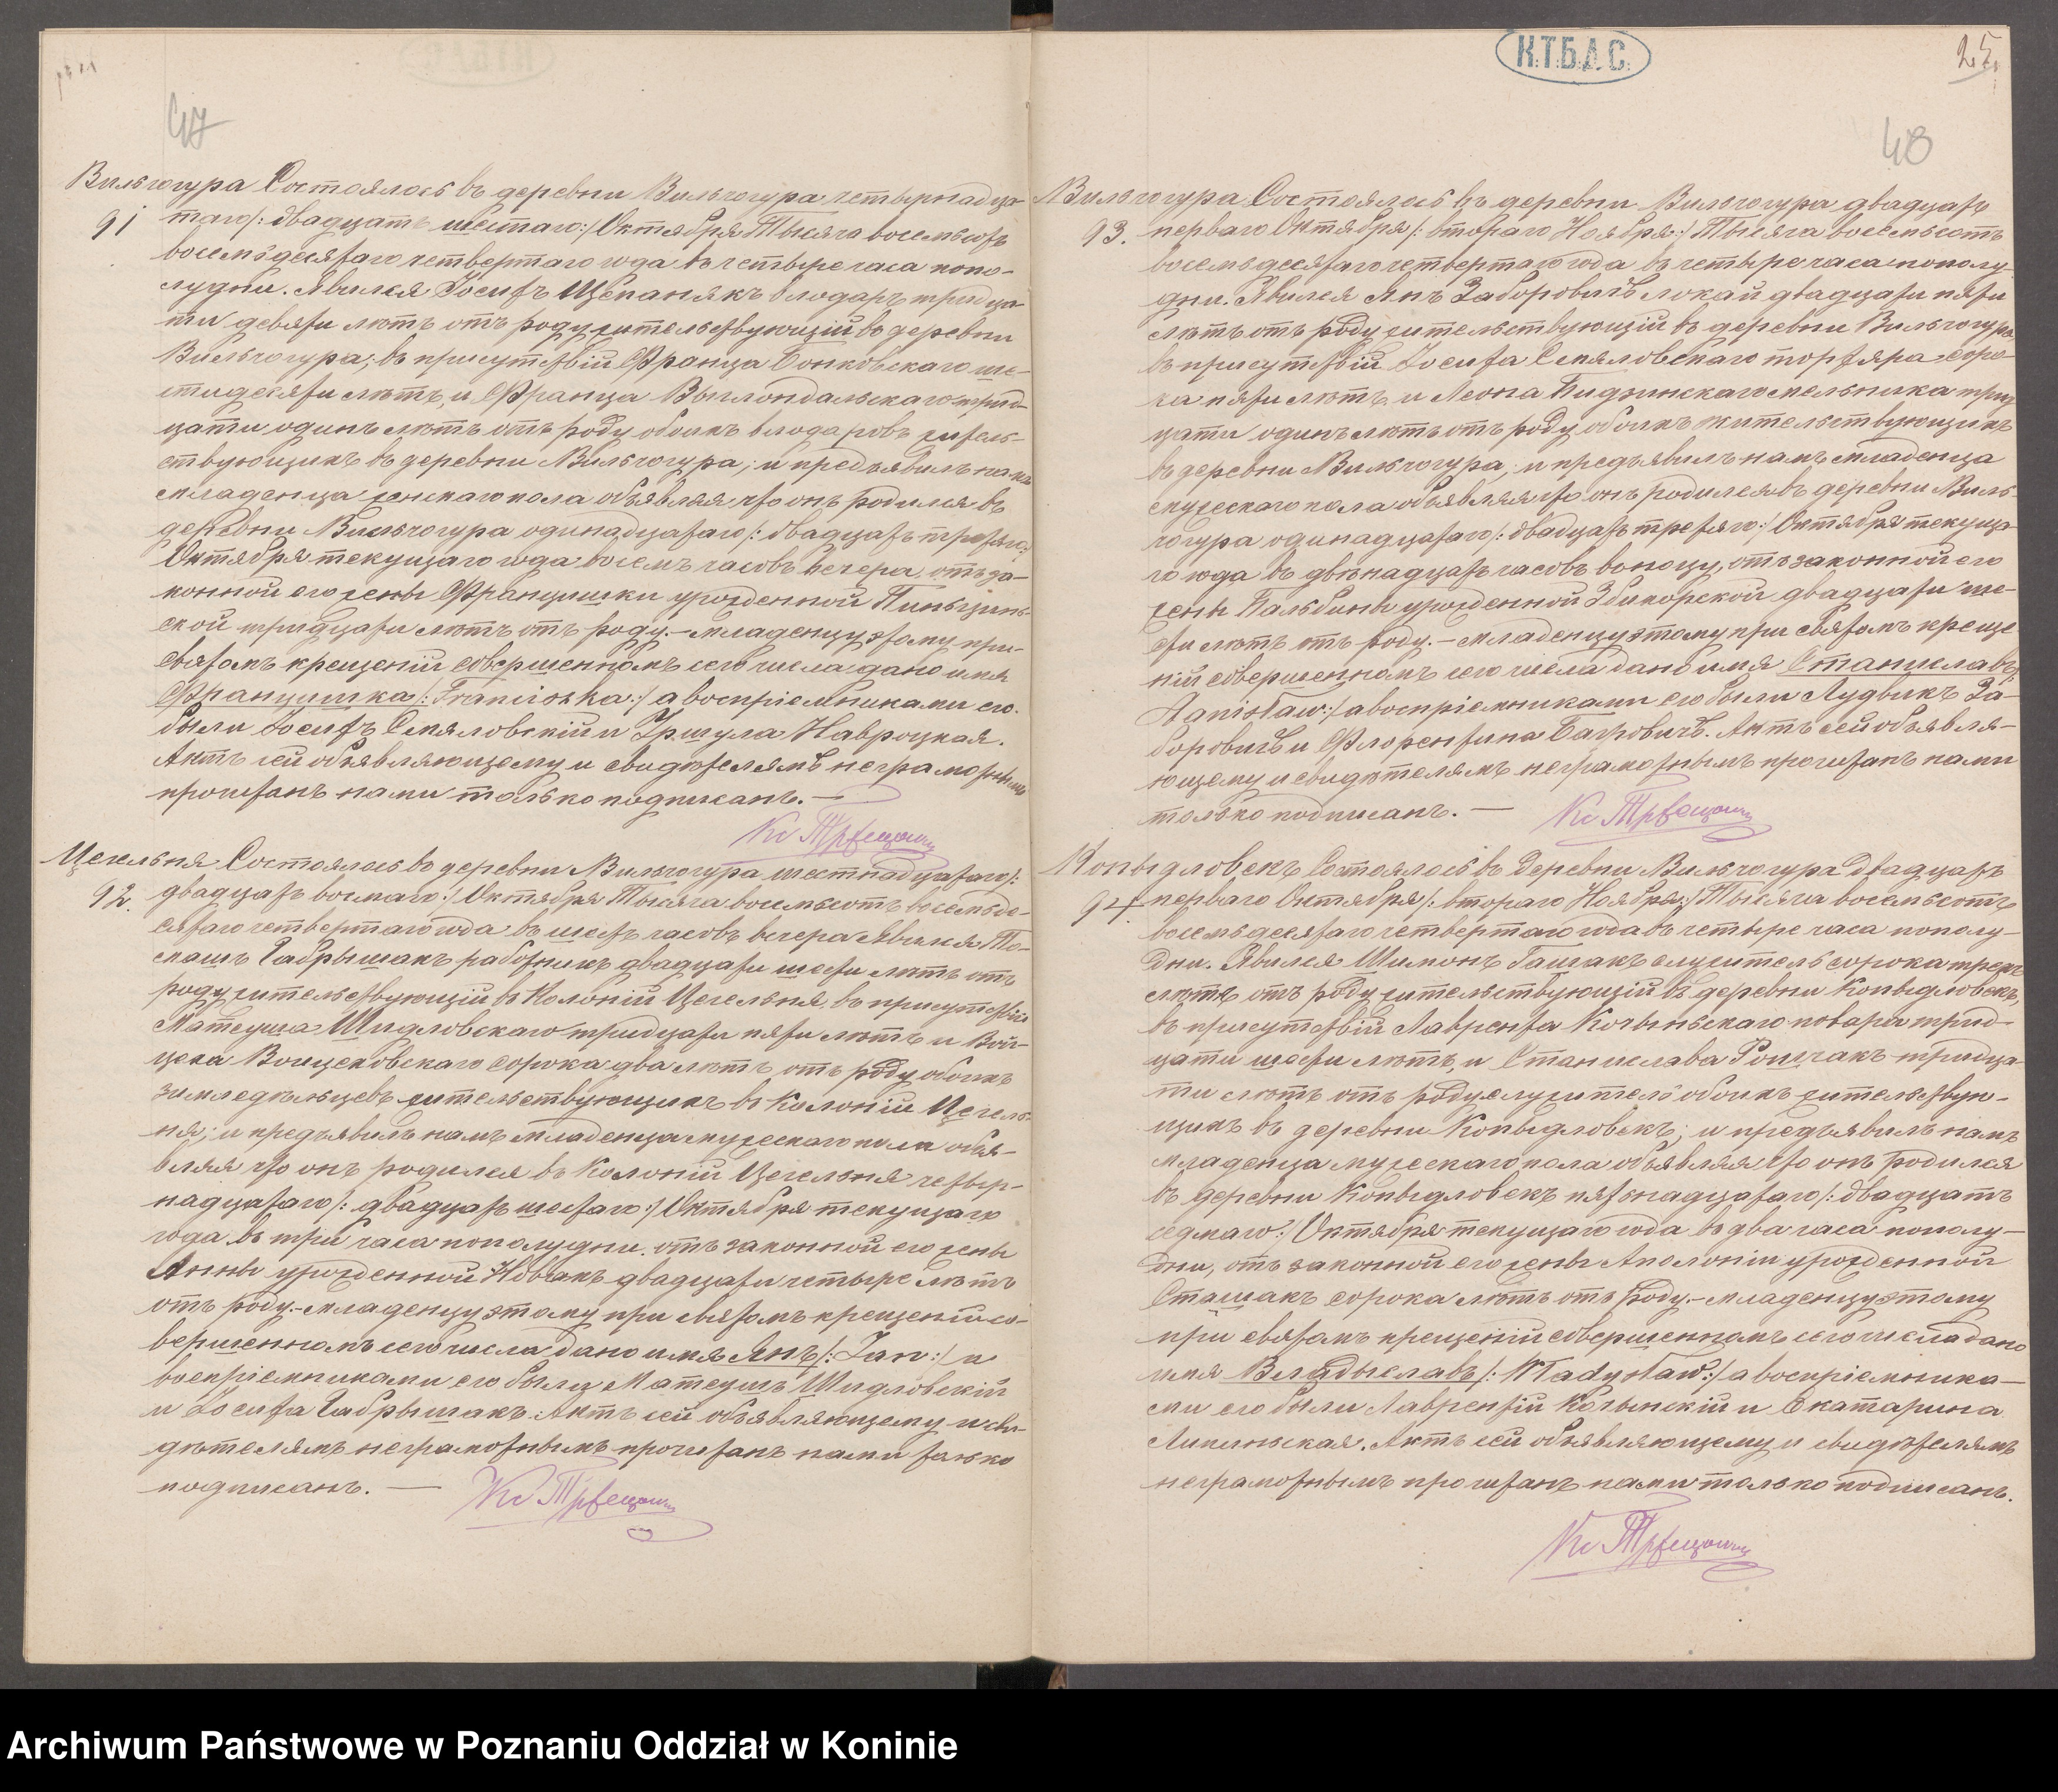 47
Вильчогура Состоялось въ деревни Вильчогура четырнадца-
91 таго /: двадцать шестаго :/ Октября Тысяча восемьсотъ
восемьдесятаго четвертаго года въ четыре часа попо-
лудни. Явился Іосифъ Щепанякъ влодаръ тридца-
ти девяти лѣтъ отъ роду жительствующій въ деревни
Вильчогура; въ присутствіи Франца Бонковскаго ше-
стидесяти лѣтъ, и Франца тридн-
цати одинъ лѣтъ отъ роду обоихъ влодаровъ житель-
ствующихъ въ деревни Вильчогура; и предъявилъ намъ
младенца женскаго пола объявляя что онъ родился въ
деревни Вильчогура одинадцатаго /: двадцать третяго :/
Октября текущаго года восемъ часовъ вечера, отъ за-
конной его жены Францишки урожденной
ской тридцати лѣтъ отъ роду. – Младенцу этому при
святомъ крещеніи совершенномъ сего числа дано имя
Францишка /: Franciszka :/ а воспріемниками его
были Іосифъ Смяловскій и Уршула Навроцкая.
Актъ сей объявляющему и свидѣтелямъ неграмотнымъ
прочитанъ нами только подписанъ. –
Цегельня Состоялось въ деревни Вильчогура шестнадцатаго /:
92. двадцать восмаго :/ Октября Тысяча восемьсотъ восемьде-
сятаго четвертаго года въ шесть часовъ вечера Явился То-
машъ Габрышакъ работникъ двадцати шести лѣтъ отъ
роду жительствующій въ Колоніи Цегельня, въ присутствіи
Матеуша Шидловскаго тридцати пяти лѣтъ и Вой-
цеха Войцеховскаго сорока два лѣтъ отъ роду обоихъ
земледѣльцевъ жительствующихъ въ Колоніи Цегель-
ня; и предъявилъ намъ младенца мужескаго пола объя-
вляя что онъ родился въ Колоніи Цегельня четыр-
надцатаго /: двадцать шестаго :/ Октября текущаго
года въ три часа пополудни отъ законной его жены
Анны урожденной двадцати четыре лѣтъ
отъ роду. – Младенцу этому при святомъ крещеніи со-
вершенномъ сего числа дано имя Янъ /: Jan :/ и
воспріемниками его были Матеушъ Шидловскій
и Іосифа Габрышакъ. Актъ сей объявляющему и сви-
дѣтелямъ неграмотнымъ прочитанъ нами только
подписанъ. –
К.Т.Б.А.С.
25
48
Вильчогура Состоялось въ деревни Вильчогура двадцать
93. перваго Октября /: втораго Ноября :/ Тысяча восемьсотъ
восемьдесятаго четвертаго года въ четыре часа пополу-
дни. Явился Янъ Заборовичъ локай двадцати пяти
лѣтъ отъ роду жительствующій въ деревни Вильчогура
въ присутствіи Іосифа Смяловскаго торфяра соро-
ка пяти лѣтъ и Леона Бидзинскаго мельника трид-
цати одинъ лѣтъ отъ роду обоихъ жительствующихъ
въ деревни Вильчогура, и предъявилъ намъ младенца
мужескаго пола объявляя что онъ родился въ деревни Виль-
чогура одинадцатаго /: двадцать третяго :/ Октября текуща-
го года въ двѣнадцать часовъ въ ночи, отъ законной его
жены Бальбины урожденной Збикорской двадцати ше-
сти лѣтъ отъ роду. – Младенцу этому при святомъ креще-
ніи совершенномъ сего числа дано имя Станиславъ /:
Stanisław :/ а воспріемниками его были Лудвикъ За-
боровичъ и Флорентина Багровичъ. Актъ сей объявля-
ющему и свидѣтелямъ неграмотнымъ прочитанъ нами
только подписанъ. –
Копыдловекъ Состоялось въ Деревни Вильчогура Двадцать
94 перваго Октября /: втораго Ноября :/ Тысяча восемьсотъ
восемьдесятаго четвертаго года въ четыре часа пополу-
дни. Явился Шимонъ Гашакъ служитель сорока трехъ
лѣтъ отъ роду жительствующій въ деревни Копыдловекъ,
въ присутствіи Лаврентa Кочыньскаго повара трид-
цати шести лѣтъ, и Станислава тридца-
ти лѣтъ отъ роду служителя обоихъ жительствую-
щихъ въ деревни Копыдловекъ; и предъявилъ намъ
младенца мужескаго пола объявляя что онъ родился
въ деревни Копыдловекъ пятьнадцатаго /: двадцать
седмаго :/ Октября текущаго года въ два часа пополу-
дни, отъ законной его жены Аполоніи урожденной
Сташакъ сорока лѣтъ отъ роду. – Младенцу этому
при святомъ крещеніи совершенномъ сего числа дано
имя Владыславъ /: Władysław :/ а воспріемника-
ми его были Лаврентій Кочынскій и Екатарина
Липиньская. Актъ сей объявляющему и свидѣтелямъ
неграмотнымъ прочитанъ нами только подписанъ.
Archiwum Państwowe w Poznaniu Oddział w Koninie